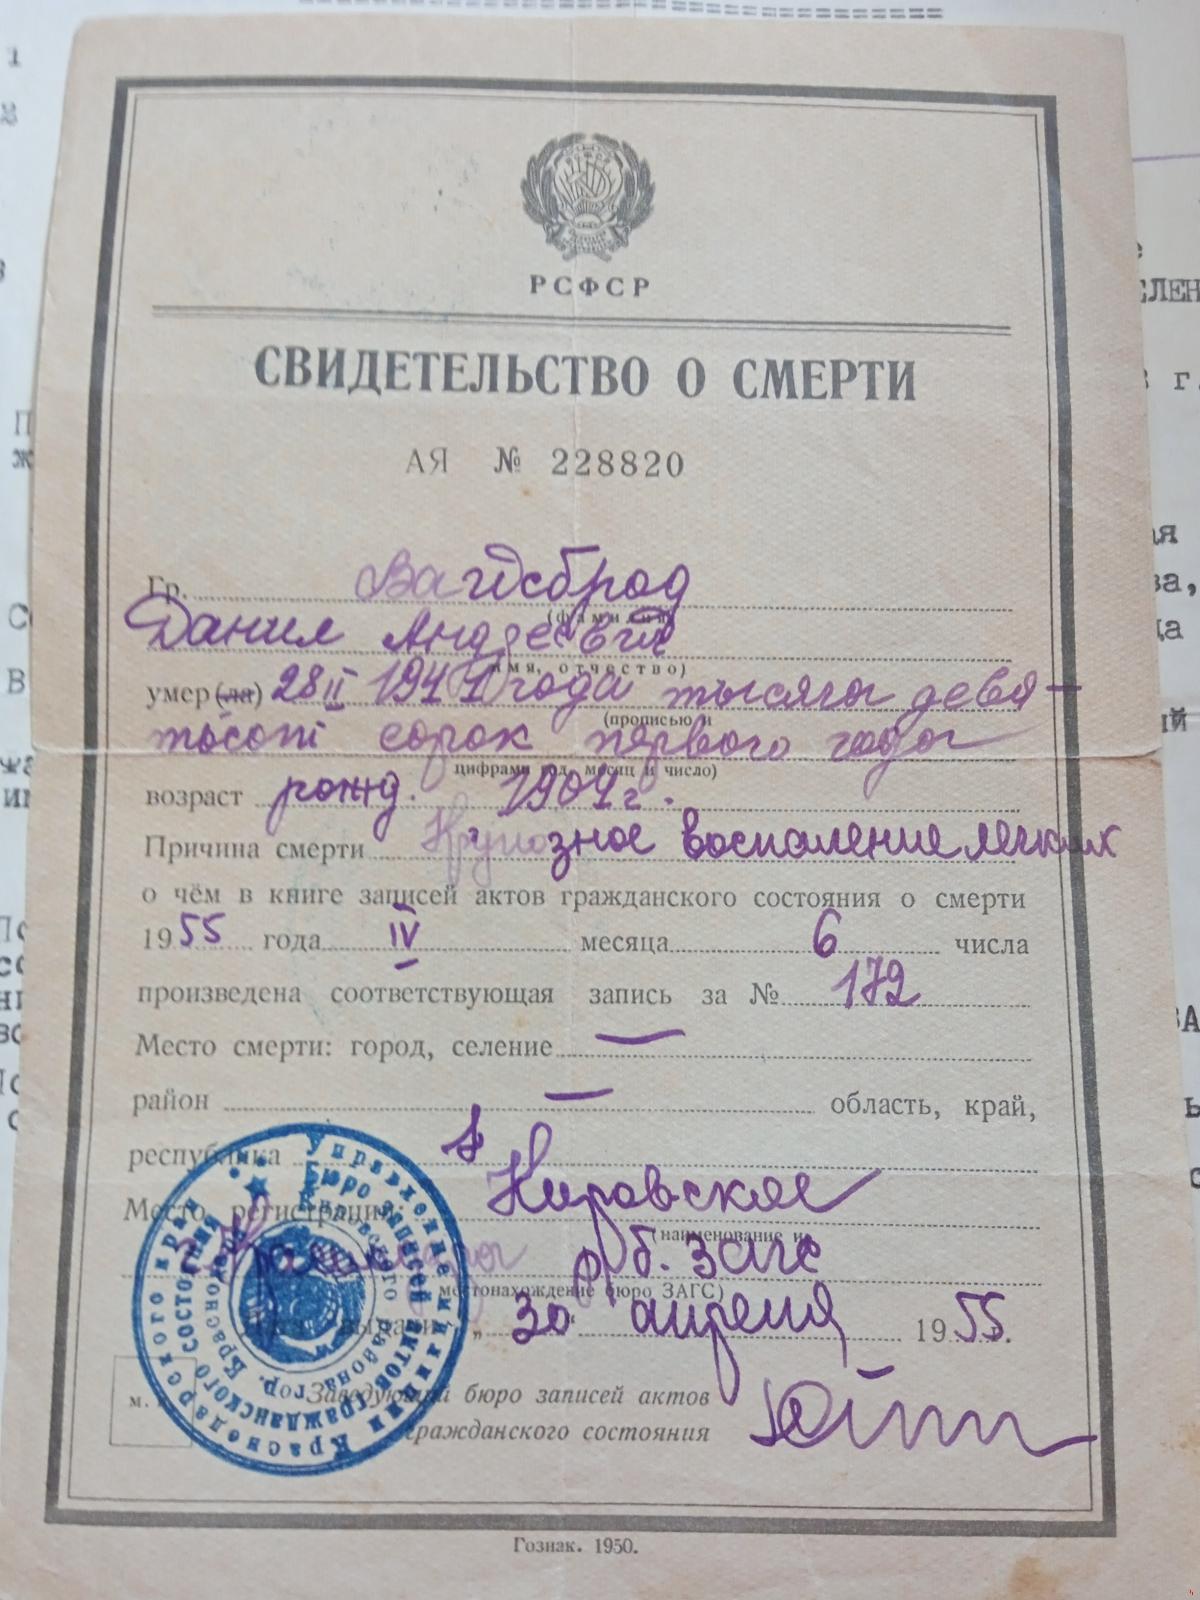 РСФСР
СВИДЕТЕЛЬСТВО О СМЕРТИ
АЯ № 228820
Гр. Вагдсброд
(фамилия)
Данил Андреевич
(имя, отчество)
умер(ла) 28 II 1941 года тысяча девя-
(прописью и
тьсот сорок первого года
цифрами год, месяц и число)
возраст рожд. 1904 г.
Причина смерти Крупозное воспаление легких
о чём в книге записей актов гражданского состояния о смерти
1955 года IV месяца 6 числа
произведена соответствующая запись за № 172
Место смерти: город, селение —
район — область, край,
республика
Место регистрации: Кировское
(наименование и
г. Краснодара рб. ЗАГС
местонахождение бюро ЗАГС)
Дата выдачи „30“ апреля 1955.
м.
Заведующий бюро записей актов
гражданского состояния
Управление милиции Краснодарского края
Бюро записей актов гражданского состояния
Кировского района гор. Краснодара
Гознак. 1950.